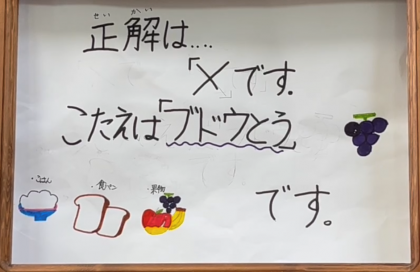 せいかい
正解は....
「×」です。
こたえは「ブドウとう」
・ごはん ・食パン ・果物
です。